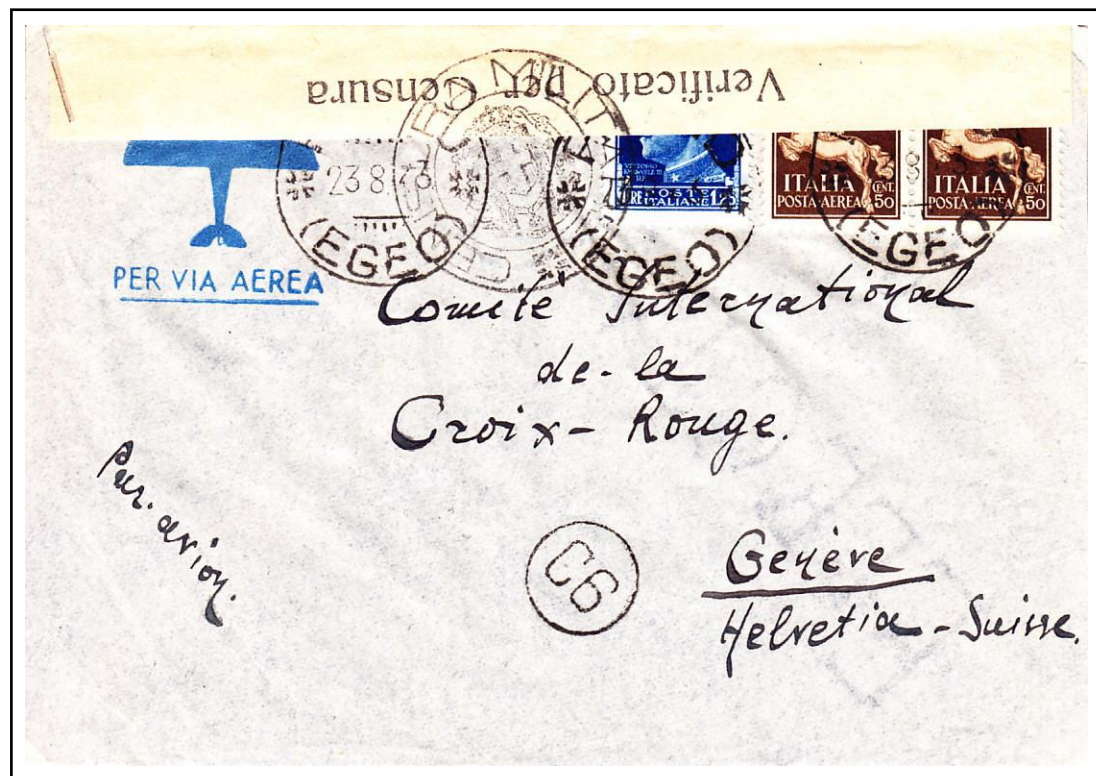 Verificato per Censura
PER VIA AEREA
23 8
(EGEO)
(EGEO)
(EGEO)
POSTE
ITALIANE
ITALIA
POSTA-AEREA
CENT.
50
ITALIA
POSTA-AEREA
CENT.
50
Comité International
de-la
Croix-Rouge.
Par.avion.
C6
Genève
Helvetia-Suisse.